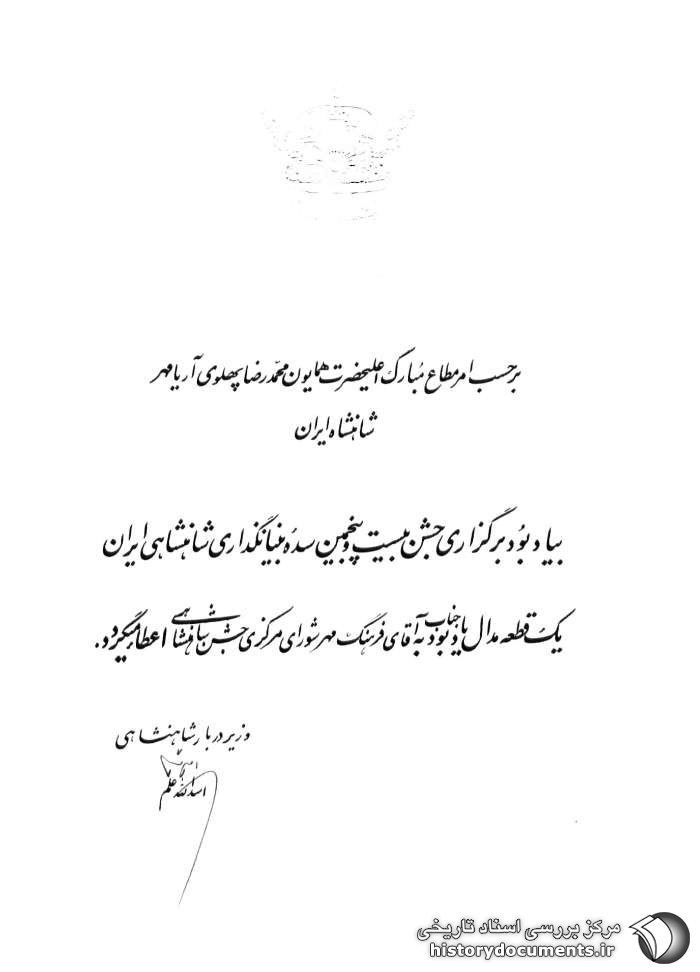 برحسب امر مطاع مبارک اعلیحضرت همایون محمدرضا پهلوی آریامهر
شاهنشاه ایران
بیادبود برگزاری جشن بیست و پنجمین سده بنیانگذاری شاهنشاهی ایران
یک قطعه مدال یادبود به جناب آقای فرهنگ مهر شورای مرکزی جشن شاهنشاهی اعطا میگردد.
وزیر دربار شاهنشاهی
اسدالله علم
مرکز بررسی اسناد تاریخی
historydocuments.ir